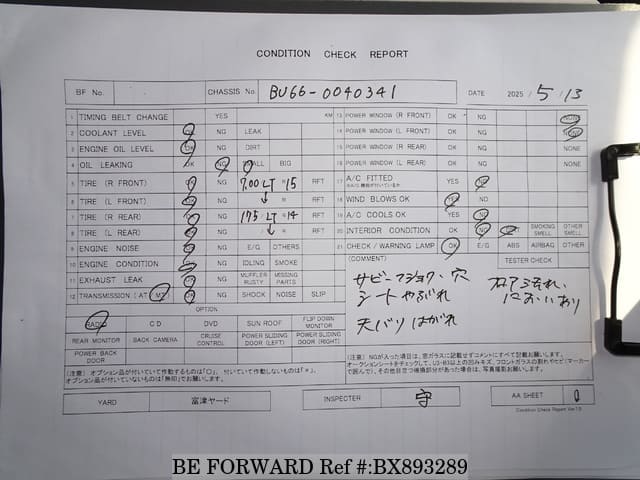 CONDITION CHECK REPORT
BF No. CHASSIS No. BU66-0040341 DATE 2025/5/13
1 TIMING BELT CHANGE YES KM 13 POWER WINDOW (R FRONT) OK NG NONE
2 COOLANT LEVEL OK NG LEAK 14 POWER WINDOW (L FRONT) OK NG NONE
3 ENGINE OIL LEVEL OK NG DIRT 15 POWER WINDOW (R REAR) OK NG NONE
4 OIL LEAKING OK NG SMALL BIG 16 POWER WINDOW (L REAR) OK NG NONE
5 TIRE (R FRONT) OK NG 7.00 LT R 15 RFT 17 A/C FITTED YES NG
6 TIRE (L FRONT) OK NG R RFT 18 WIND BLOWS OK YES NG
7 TIRE (R REAR) OK NG 175 LT R 14 RFT 19 A/C COOLS OK YES NO
8 TIRE (L REAR) OK NG R RFT 20 INTERIOR CONDITION OK NG SMOKING SMELL OTHER SMELL
9 ENGINE NOISE OK NG E/G OTHERS 21 CHECK / WARNING LAMP OK E/G ABS AIRBAG OTHER
10 ENGINE CONDITION NG IDLING SMOKE (COMMENT) TESTER CHECK
11 EXHAUST LEAK OK NG MUFFLER RUSTY MISSING PARTS
12 TRANSMISSION (AT MT) OK NG SHOCK NOISE SLIP
サビーフショク、穴
シートやぶれ
天バリはがれ
においあり
OPTION
RADIO CD DVD SUN ROOF FLIP DOWN MONITOR
REAR MONITOR BACK CAMERA CRUISE CONTROL POWER SLIDING DOOR (LEFT) POWER SLIDING DOOR (RIGHT)
POWER BACK DOOR
(注意) オプション品が付いていて作動するものは「○」、付いていて作動しないものは「×」、
オプション品が付いていないものは「無印」でお願いします。
(注意) NGが入った項目は、窓ガラスに記載せずコメントにすべて記載お願いします。
YARD 富津ヤード INSPECTER 守 AA SHEET 0
Condition Check Report Ver.7.0
BE FORWARD Ref #:BX893289